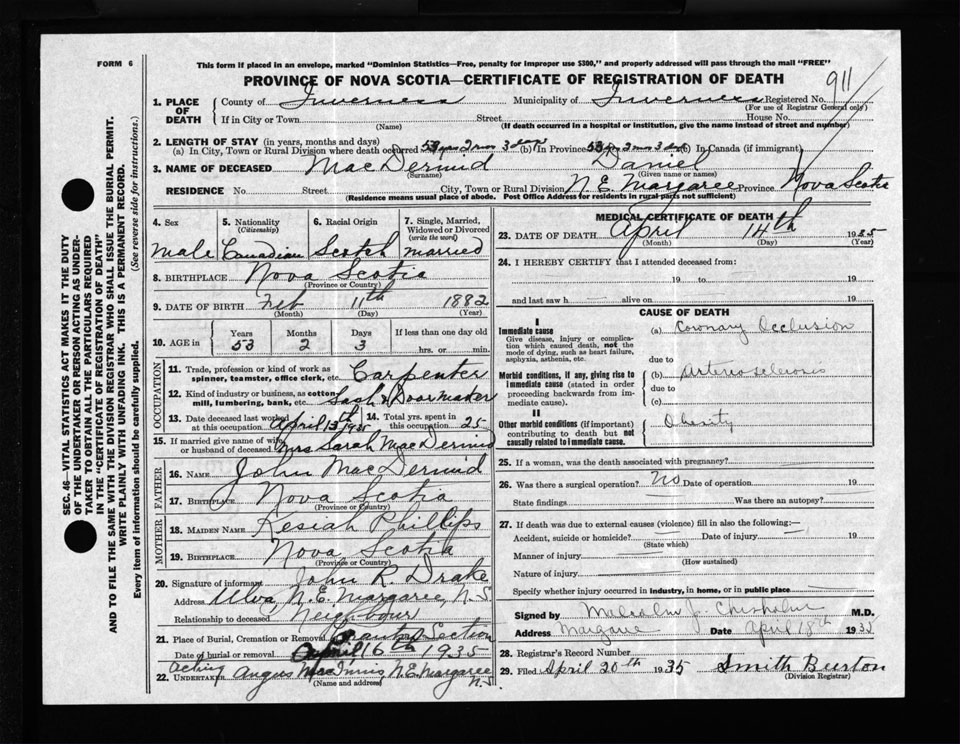 FORM 6
This form if placed in an envelope, marked "Dominion Statistics—Free, penalty for improper use $300," and properly addressed will pass through the mail "FREE"
PROVINCE OF NOVA SCOTIA—CERTIFICATE OF REGISTRATION OF DEATH
911
1. PLACE OF DEATH
County of Inverness Municipality of Inverness Registered No.
(For use of Registrar General only)
If in City or Town Street House No.
(Name) (If death occurred in a hospital or institution, give the name instead of street and number)
2. LENGTH OF STAY (in years, months and days)
(a) In City, Town or Rural Division where death occurred 53 yrs 2 mos 3 days (b) In Province 53 yrs 2 mos 3 days (c) In Canada (if immigrant)
3. NAME OF DECEASED MacDermid Daniel
(Surname) (Given name or names)
RESIDENCE No. Street City, Town or Rural Division N. E. Margaree Province Nova Scotia
(Residence means usual place of abode. Post Office Address for residents in rural parts not sufficient)
4. Sex 5. Nationality 6. Racial Origin 7. Single, Married, Widowed or Divorced
(Citizenship) (write the word)
Male Canadian Scotch married
8. BIRTHPLACE Nova Scotia
(Province or Country)
9. DATE OF BIRTH Feb 11th 1882
(Month) (Day) (Year)
10. AGE in Years Months Days If less than one day old
53 2 3 hrs. or min.
OCCUPATION
11. Trade, profession or kind of work as spinner, teamster, office clerk, etc. Carpenter
12. Kind of industry or business, as cotton mill, lumbering, bank, etc. Sash & Doormaker
13. Date deceased last worked at this occupation April 13th 1935 14. Total yrs. spent in this occupation 25
15. If married give name of wife or husband of deceased Mrs Sarah MacDermid
FATHER
16. NAME John MacDermid
17. BIRTHPLACE Nova Scotia
(Province or Country)
MOTHER
18. MAIDEN NAME Kesiah Phillips
19. BIRTHPLACE Nova Scotia
(Province or Country)
20. Signature of informant John R. Drake
Address Ulva N. E. Margaree, N.S.
Relationship to deceased Neighbour
21. Place of Burial, Cremation or Removal Section
Date of burial or removal April 16th 1935
Acting
22. UNDERTAKER Angus MacInnis, N.E. Margaree N.S.
(Name and address)
MEDICAL CERTIFICATE OF DEATH
23. DATE OF DEATH April 14th 1935
(Month) (Day) (Year)
24. I HEREBY CERTIFY that I attended deceased from:
19 to 19
and last saw h alive on 19
CAUSE OF DEATH
I
Immediate cause (a) Coronary Occlusion
Give disease, injury or complication which caused death, not the mode of dying, such as heart failure, asphyxia, asthenia, etc.
due to
Morbid conditions, if any, giving rise to immediate cause (stated in order proceeding backwards from immediate cause).
(b) Arteriosclerosis
due to
(c)
II
Other morbid conditions (if important) contributing to death but not causally related to immediate cause.
Obesity
25. If a woman, was the death associated with pregnancy?
26. Was there a surgical operation? No Date of operation 19
State findings Was there an autopsy?
27. If death was due to external causes (violence) fill in also the following:
Accident, suicide or homicide? Date of injury 19
(State which)
Manner of injury
(How sustained)
Nature of injury
Specify whether injury occurred in industry, in home, or in public place
Signed by Malcolm J. Chisholm M.D.
Address Margaree Date April 18th 1935
28. Registrar's Record Number
29. Filed April 20th 1935 Smith Burton
(Division Registrar)
SEC. 46—VITAL STATISTICS ACT MAKES IT THE DUTY
OF THE UNDERTAKER OR PERSON ACTING AS UNDER-
TAKER TO OBTAIN ALL THE PARTICULARS REQUIRED
IN THE "CERTIFICATE OF REGISTRATION OF DEATH"
AND TO FILE THE SAME WITH THE DIVISION REGISTRAR WHO SHALL ISSUE THE BURIAL PERMIT.
WRITE PLAINLY WITH UNFADING INK. THIS IS A PERMANENT RECORD.
Every item of information should be carefully supplied. (See reverse side for instructions.)